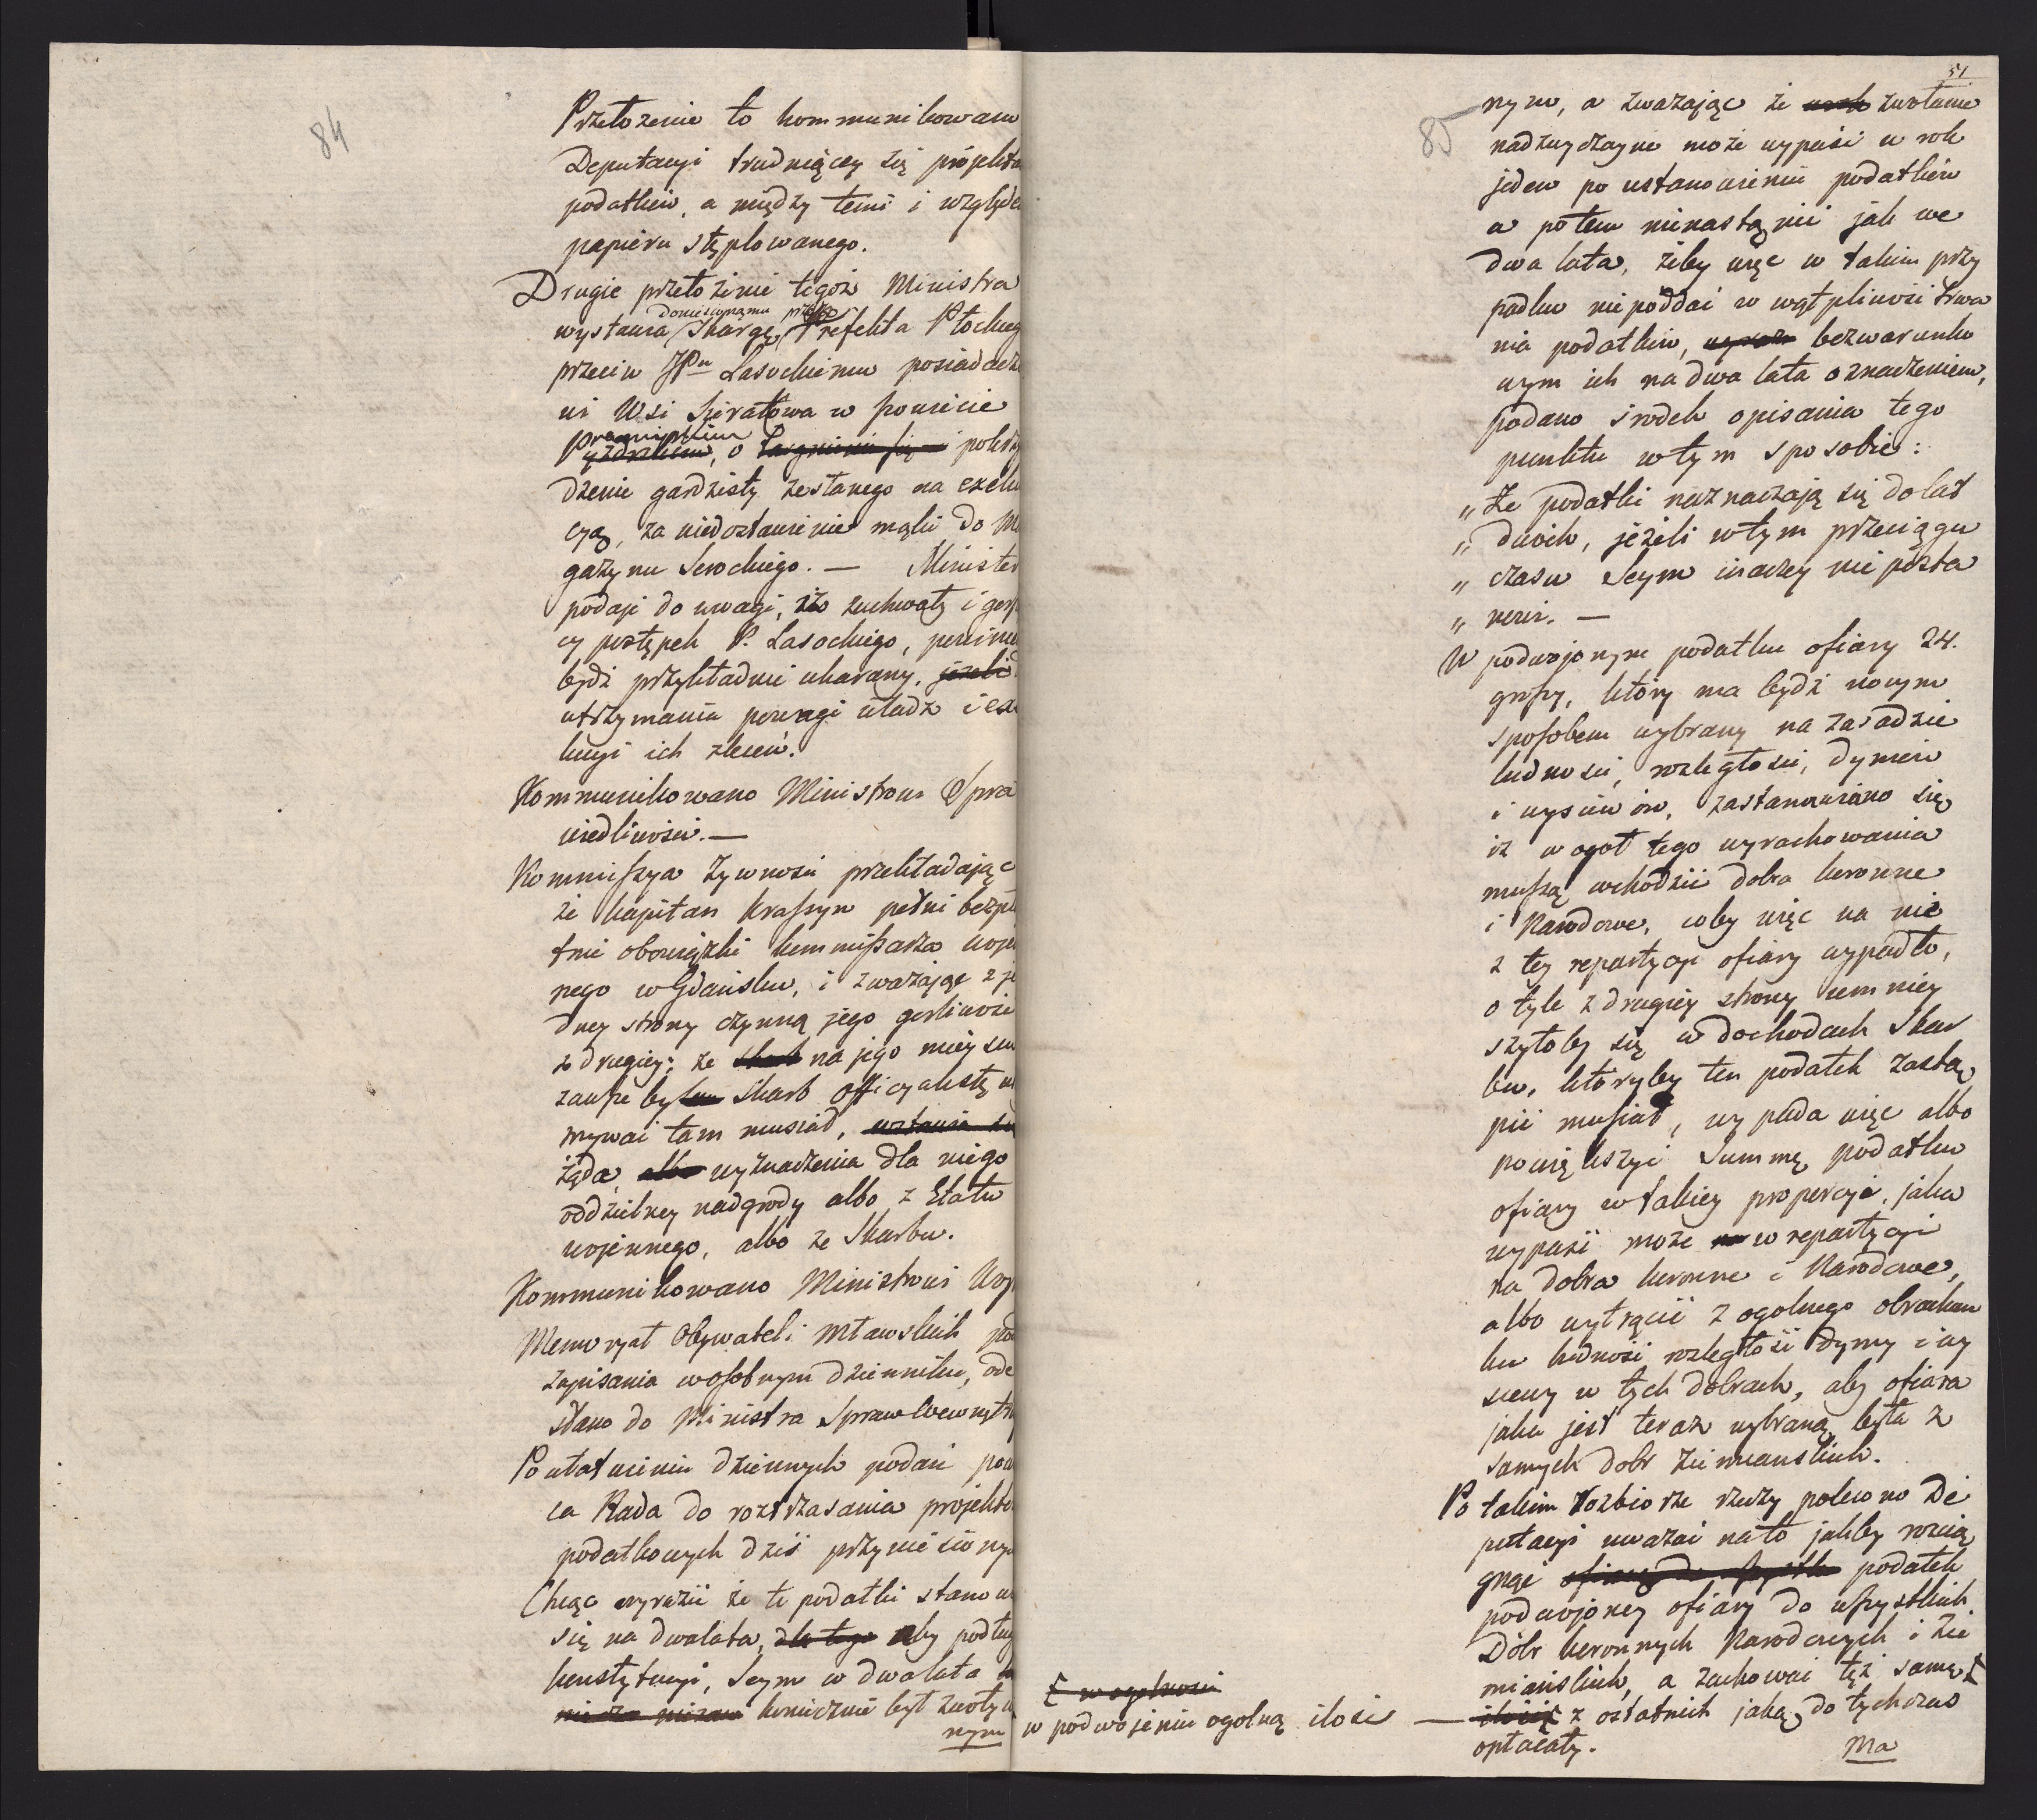 84
Przełożenie to kommunikowano
Deputacyi trudniącey się projekta
podatków, a między temi i względe
papieru stęplowanego.
Drugie przełożenie tegoż Ministra
doniesioną mu przez
wystawia skargę Prefekta Płockieg
przeciw JPu Lasockiemu posiadacz
wi Wsi w powiecie
Przasnyskim
o pokrzy
dzenie gardzisty zesłanego na exeku
cyą, za niedostawienie mąki do Ma
gazynu Serockiego. — Minister
podaje do uwagi, iż zuchwały i gorsz
cy postępek P. Lasockiego, powinie
bydź przykładnie ukarany, jeżeli
utrzymania powagi władz i exe
kucyi ich zleceń.
Kommunikowano Ministrowi Spra
wiedliwości. —
Kommissya Żywności przekładając
że kapitan Krassyn pełni bezpła
tnie obowiązki kommissarza woje
nego w Gdańsku, i zważając z je
dney strony czynną jego gorliwość
z drugiey; że na jego mieysce
zawsze by skarb officyalistę u
mywać tam musiał,
żąda, albo wyznaczenia dla niego
oddzielney nadgrody albo z Etatu
wojennego, albo ze Skarbu.
Kommunikowano Ministrowi Woj
Memoryał Obywateli Mławskich po
zapisaniu w osobnym dzienniku, ode
słano do Ministra Spraw Wewnętrz
Po ułatwieniu dziennych podań prac
ca Rada do roztrząsania projektó
podatkowych dziś przyniesionyc
Chcąc wyrazić że te podatki stanow
się na dwa lata, dla tego aby podług
konstytucyi, Seym w dwa lata
koniecznie był zwoły
nym
51
85
nym, a zważając że zwołanie
nadzwyczayne może wypaść w rok
jeden po ustanowieniu podatków
a potem nie nastąpić jak we
dwa lata, żeby więc w takim przy
padku nie poddać w wątpliwość trwa
nia podatków, bezwarunko
wym ich na dwa lata oznaczeniem,
podano środek opisania tego
punktu w tym sposobie:
„ Że podatki naznaczają się do lat
„ dwóch, jeżeli w tym przeciągu
„ czasu Seym inaczey nie posta
„ nowi. —
W podwojonym podatku ofiary 24.
groszy, który ma bydź nowym
sposobem wybrany na zasadzie
ludności, rozległości, dymów
i wysiewów, zastanawiano się
iż w ogół tego wyrachowania
muszą wchodzić dobra koronne
i Narodowe, coby więc na nie
z tey repartycyi ofiary wypadło,
o tyle z drugiey strony zmniey
szyłoby się w dochodach Skar
bu, któryby ten podatek zastą
pić musiał, wypada więc albo
powiększyć Summę podatku
ofiary w takiey proporcyi, jaka
wypaść może w repartycyi
na dobra koronne i Narodowe,
albo wytrącić z ogolnego obrachun
ku ludność rozległość dymy i wy
siewy w tych dobrach, aby ofiara
jaka jest teraz wybraną była z
samych dobr ziemianskich.
Po takim rozbiorze rzeczy polecono De
putacyi uważać na to jakby rozcią
gnąć podatek
podwojoney ofiary do wszystkich
Dóbr koronnych Narodowych i zie
miańskich, a zachować też samą
w ogolności
w podwojeniu ogolną ilość —
ilość z ostatnich jaką do tychczas
opłacały.
Ma